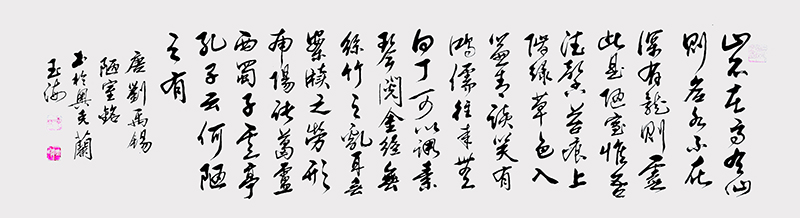 山不在高有仙
則名水不在
深有龍則靈
此是陋室惟吾
德馨苔痕上
階綠草色入
簾青談笑有
鴻儒往來無
白丁可以調素
琴閱金經無
絲竹之亂耳無
案牘之勞形
南陽諸葛廬
西蜀子雲亭
孔子云何陋
之有
唐劉禹錫
陋室銘
書於奧克蘭